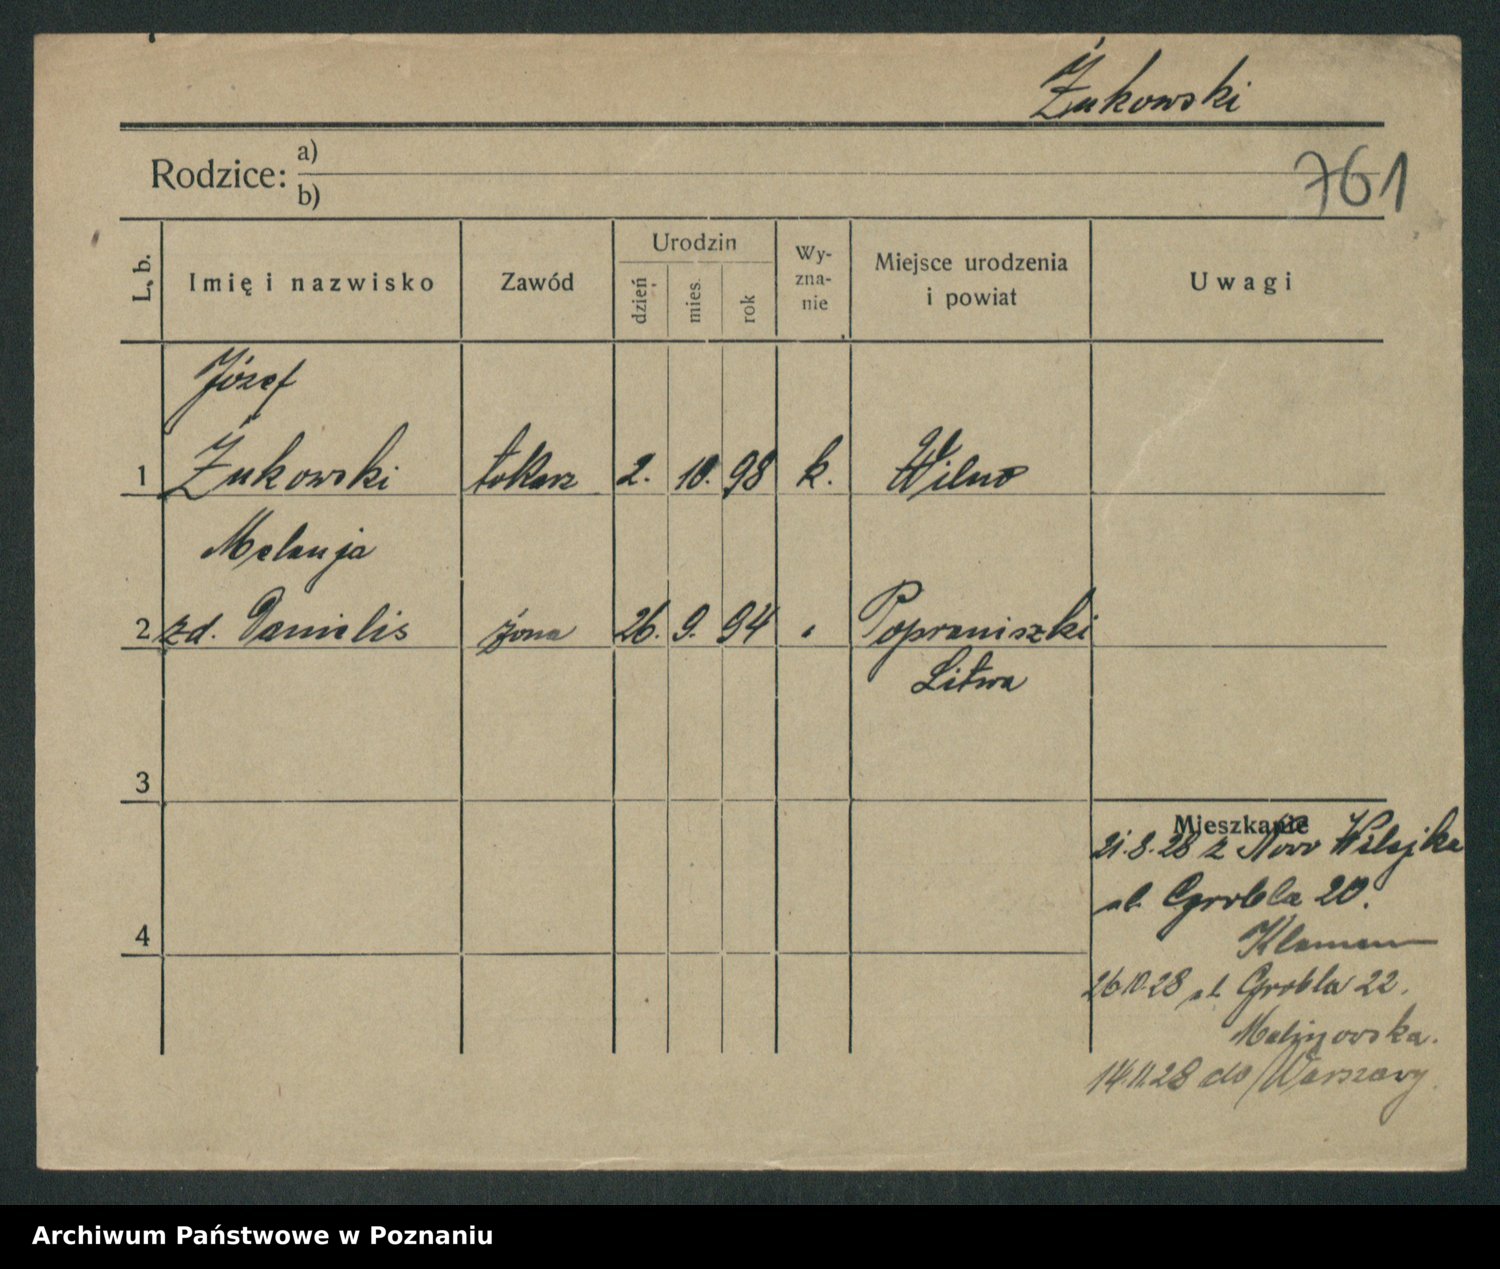 Żukowski
Rodzice: a)
b)
761
L. b.
Imię i nazwisko
Zawód
Urodzin
dzień
mies.
rok
Wy-
zna-
nie
Miejsce urodzenia
i powiat
Uwagi
Józef
1 Żukowski tokarz 2. 10. 98 k. Wilno
Melanja
2 zd. Danielis żona 26. 9. 94 Popraniszki
Litwa
3
4
Mieszkanie
21.8.28 z Nowo Wilejka
ul. Grobla 20.
26.10.28 ul. Grobla 22.
Malinowska.
14.11.28 do Warszawy.
Archiwum Państwowe w Poznaniu